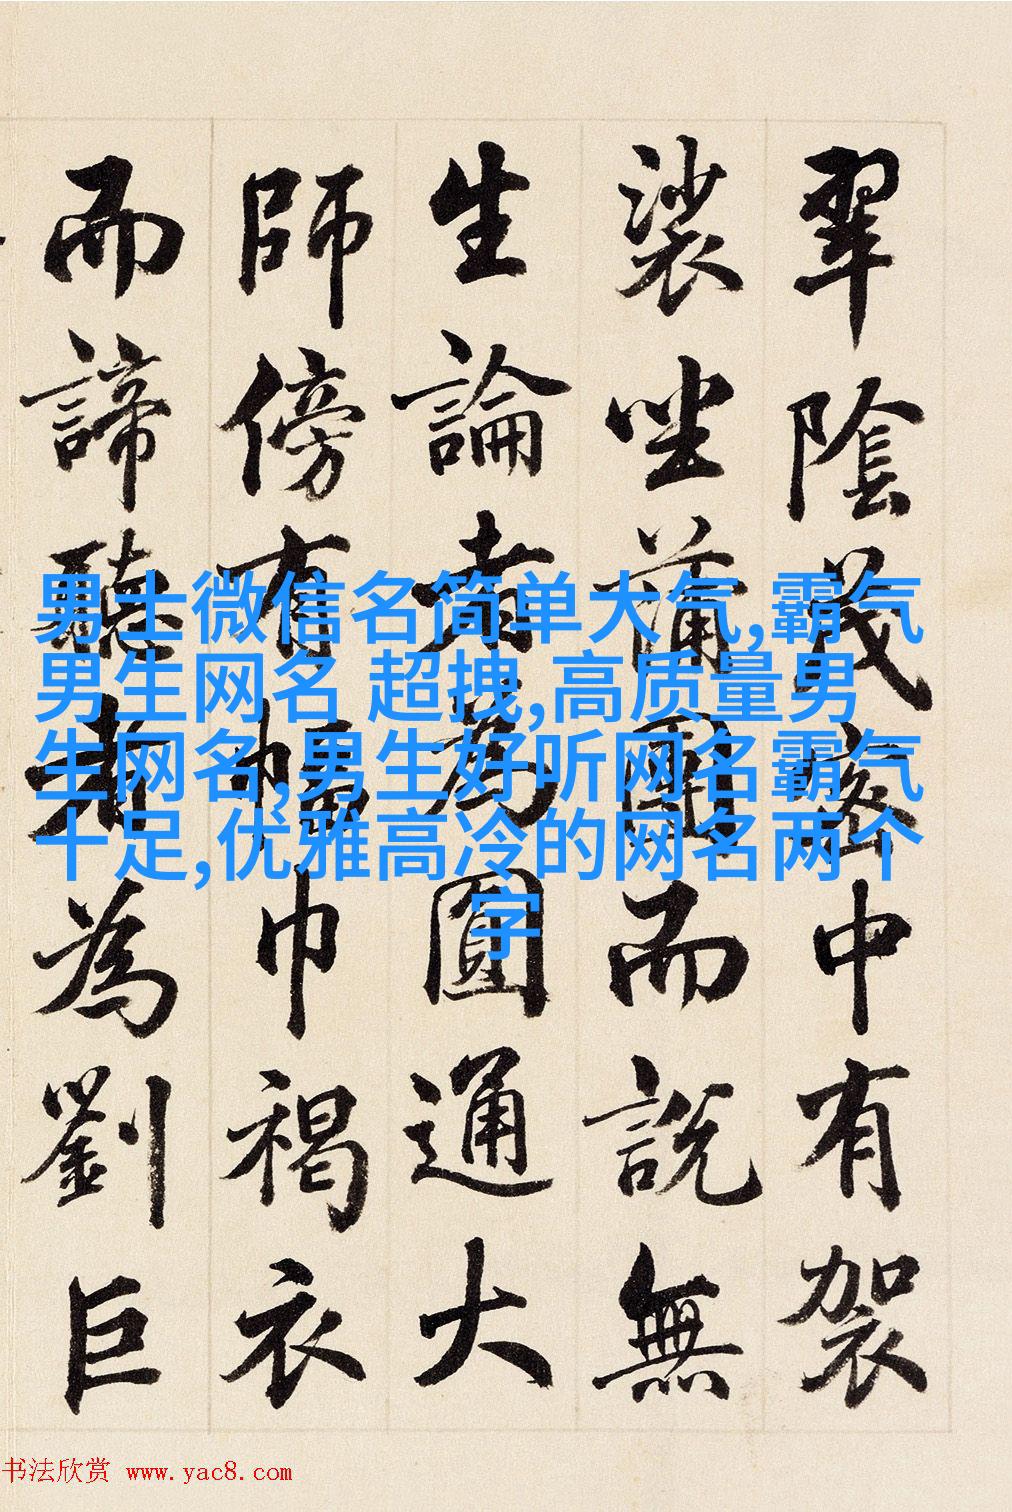 翠陰茂密中有袈
裟坐蒲團而說無
生論者為圓通大
師傍有幅巾褐衣
而諦聽者為劉巨
男士微信名简单大气,霸气
男生网名 超拽,高质量男
生网名,男生好听网名霸气
十足,优雅高冷的网名两个
字
书法欣赏 www.yac8.com